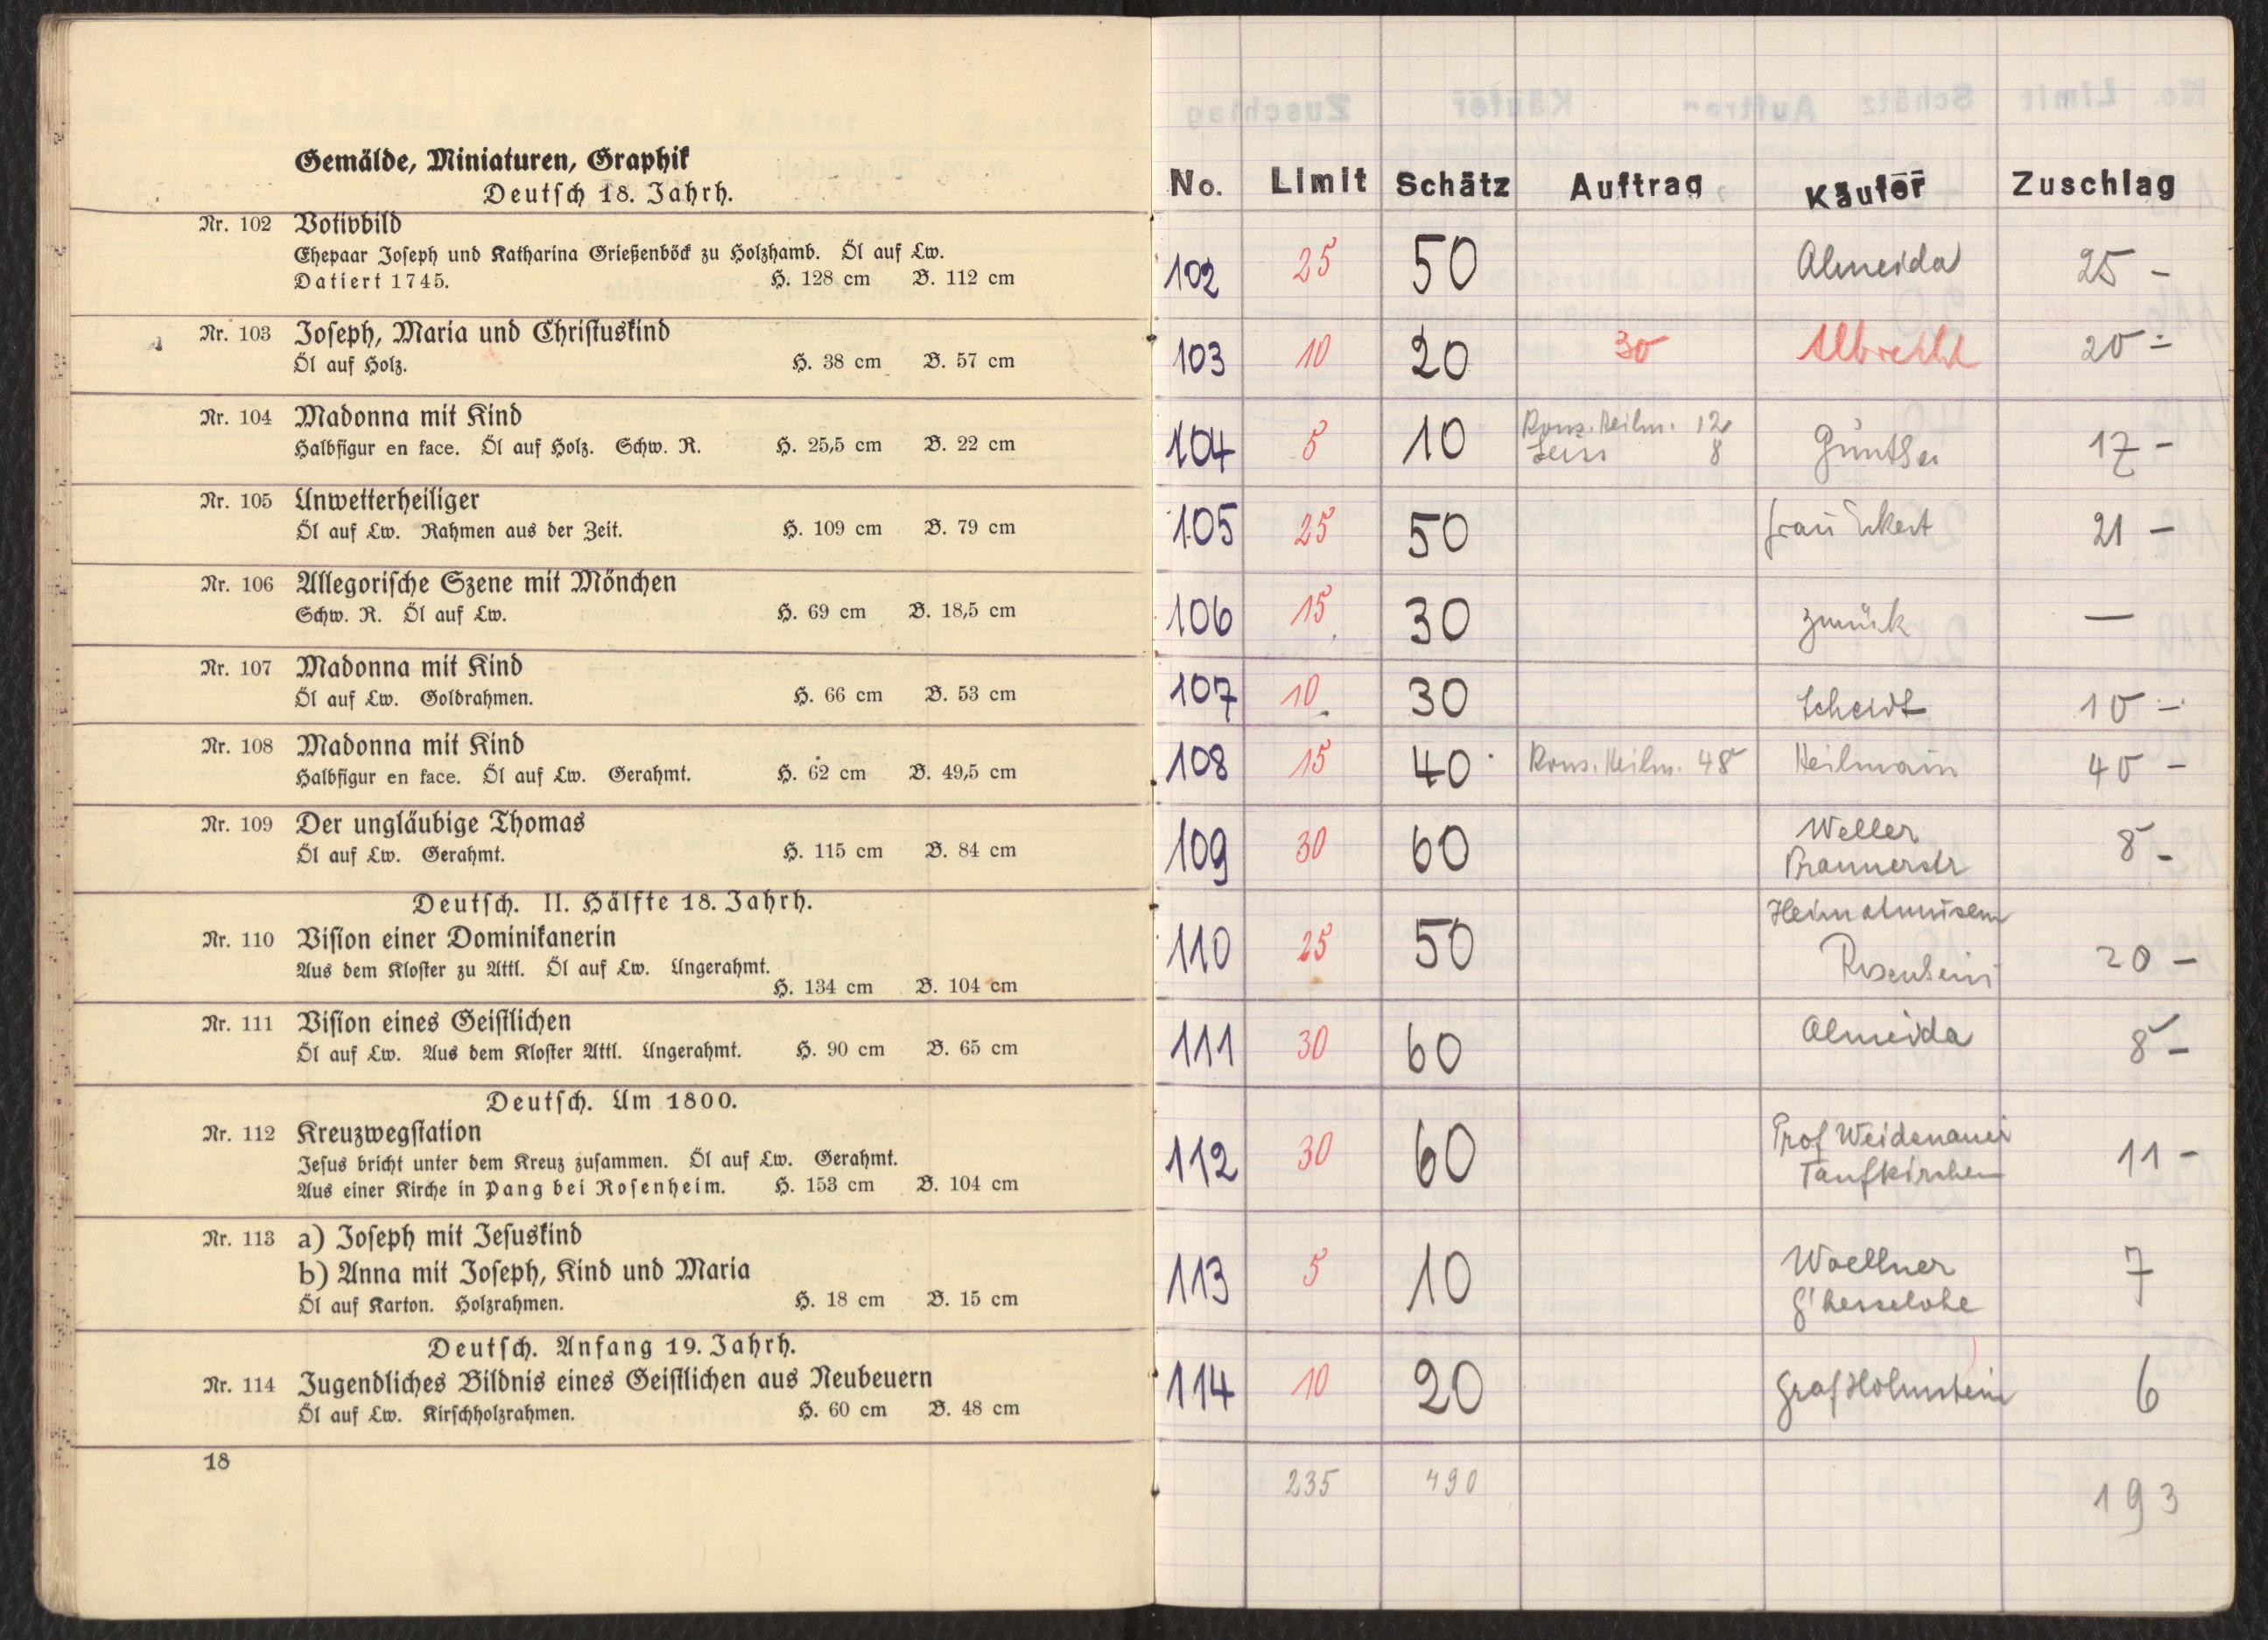 Gemälde, Miniaturen, Graphik
Deutsch 18. Jahrh.
Nr. 102 Votivbild
Ehepaar Joseph und Katharina Grießenböck zu Holzhamb. Öl auf Lw.
Datiert 1745. H. 128 cm B. 112 cm
Nr. 103 Joseph, Maria und Christuskind
Öl auf Holz. H. 38 cm B. 57 cm
Nr. 104 Madonna mit Kind
Halbfigur en face. Öl auf Holz. Schw. R. H. 25,5 cm B. 22 cm
Nr. 105 Unwetterheiliger
Öl auf Lw. Rahmen aus der Zeit. H. 109 cm B. 79 cm
Nr. 106 Allegorische Szene mit Mönchen
Schw. R. Öl auf Lw. H. 69 cm B. 18,5 cm
Nr. 107 Madonna mit Kind
Öl auf Lw. Goldrahmen. H. 66 cm B. 53 cm
Nr. 108 Madonna mit Kind
Halbfigur en face. Öl auf Lw. Gerahmt. H. 62 cm B. 49,5 cm
Nr. 109 Der ungläubige Thomas
Öl auf Lw. Gerahmt. H. 115 cm B. 84 cm
Deutsch. II. Hälfte 18. Jahrh.
Nr. 110 Vision einer Dominikanerin
Aus dem Kloster zu Attl. Öl auf Lw. Ungerahmt.
H. 134 cm B. 104 cm
Nr. 111 Vision eines Geistlichen
Öl auf Lw. Aus dem Kloster Attl. Ungerahmt. H. 90 cm B. 65 cm
Deutsch. Um 1800.
Nr. 112 Kreuzwegstation
Jesus bricht unter dem Kreuz zusammen. Öl auf Lw. Gerahmt.
Aus einer Kirche in Pang bei Rosenheim. H. 153 cm B. 104 cm
Nr. 113 a) Joseph mit Jesuskind
b) Anna mit Joseph, Kind und Maria
Öl auf Karton. Holzrahmen. H. 18 cm B. 15 cm
Deutsch. Anfang 19. Jahrh.
Nr. 114 Jugendliches Bildnis eines Geistlichen aus Neubeuern
Öl auf Lw. Kirschholzrahmen. H. 60 cm B. 48 cm
18
No. Limit Schätz Auftrag Käufer Zuschlag
102 25 50 Almeida 25 -
103 10 20 30 Albrecht 20 -
104 5 10 Kons. Heilm. 12 Günther 17 -
8
105 25 50 Frau Eckert 21 -
106 15 30 zurück —
107 10 30 Scheidt 10 -
108 15 40 Kons. Heilm. 48 Heilmann 40 -
109 30 60 Weller 8 -
Prannerstr
110 25 50 Heimatmuseum
Rosenheim 20 -
111 30 60 Almeida 8 -
112 30 60 Prof Weidenauer 11 -
Taufkirchen
113 5 10 Woellner 7
G'hesselohe
114 10 20 Graf Holnstein 6
235 490 193